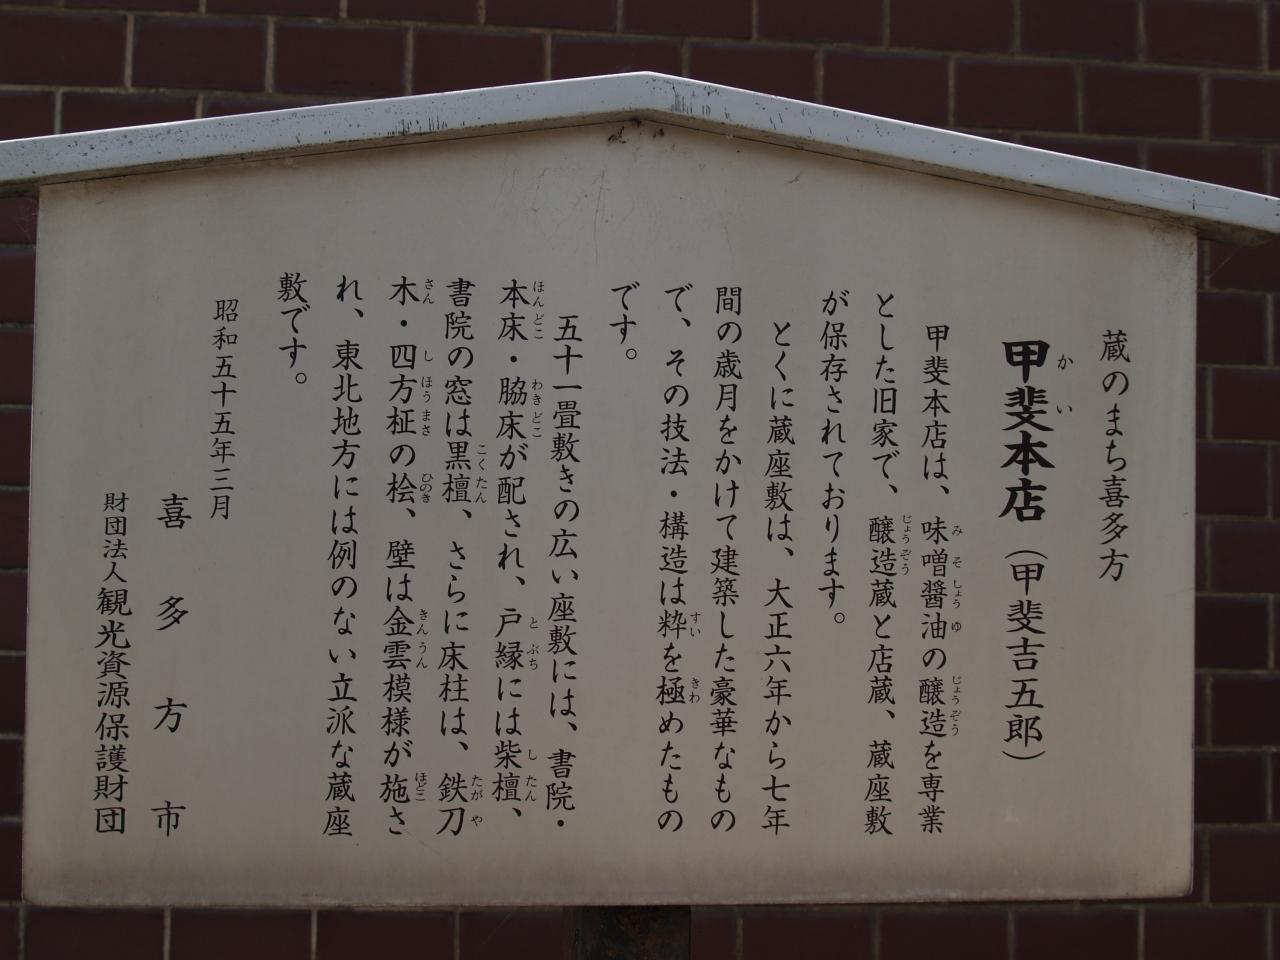 蔵のまち喜多方
甲斐本店（甲斐吉五郎）
甲斐本店は、味噌醤油の醸造を専業
とした旧家で、醸造蔵と店蔵、蔵座敷
が保存されております。
とくに蔵座敷は、大正六年から七年
間の歳月をかけて建築した豪華なもの
で、その技法・構造は粋を極めたもの
です。
五十一畳敷きの広い座敷には、書院・
本床・脇床が配され、戸縁には柴檀、
書院の窓は黒檀、さらに床柱は、鉄刀
木・四方柾の桧、壁は金雲模様が施さ
れ、東北地方には例のない立派な蔵座
敷です。
昭和五十五年三月
喜多方市
財団法人観光資源保護財団